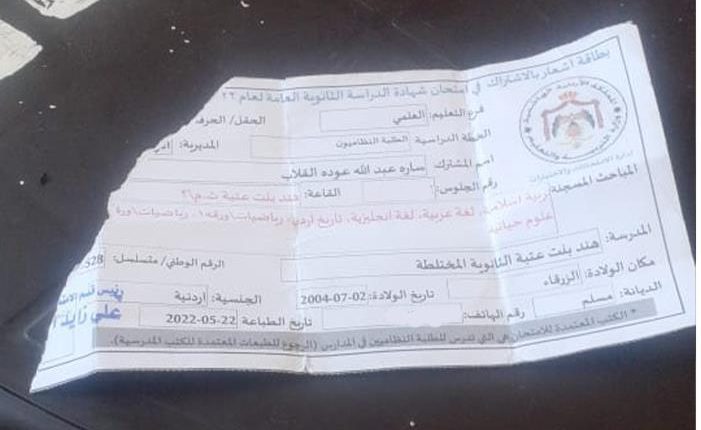 بطاقة اشعار بالاشتراك في امتحان شهادة الدراسة الثانوية العامة لعام ٢٢
المملكة الأردنية الهاشمية
وزارة التربية والتعليم
إدارة الامتحانات والاختبارات
فرع التعليم: العلمي الحقل/ الحرف
الخطة الدراسية الطلبة النظاميون المديرية:
اسم المشترك ساره عبد الله عوده القلاب
رقم الجلوس: القاعة: هند بنت عتبة ث.م/٢
المباحث المسجلة: تربية اسلامية، لغة عربية، لغة انجليزية، تاريخ اردن، رياضيات\ورقة١، رياضيات\ورقة
علوم حياتية
المدرسة: هند بنت عتبة الثانوية المختلطة
مكان الولادة: الزرقاء الرقم الوطني/ متسلسل: 528
الديانة: مسلم تاريخ الولادة: 2004-07-02 الجنسية: اردنية
رقم الهاتف: تاريخ الطباعة 2022-05-22
رئيس قسم
علي زايد
* الكتب المعتمدة للامتحان هي التي تدرس للطلبة النظاميين في المدارس (الرجوع للطبعات المعتمدة للكتب المدرسية).